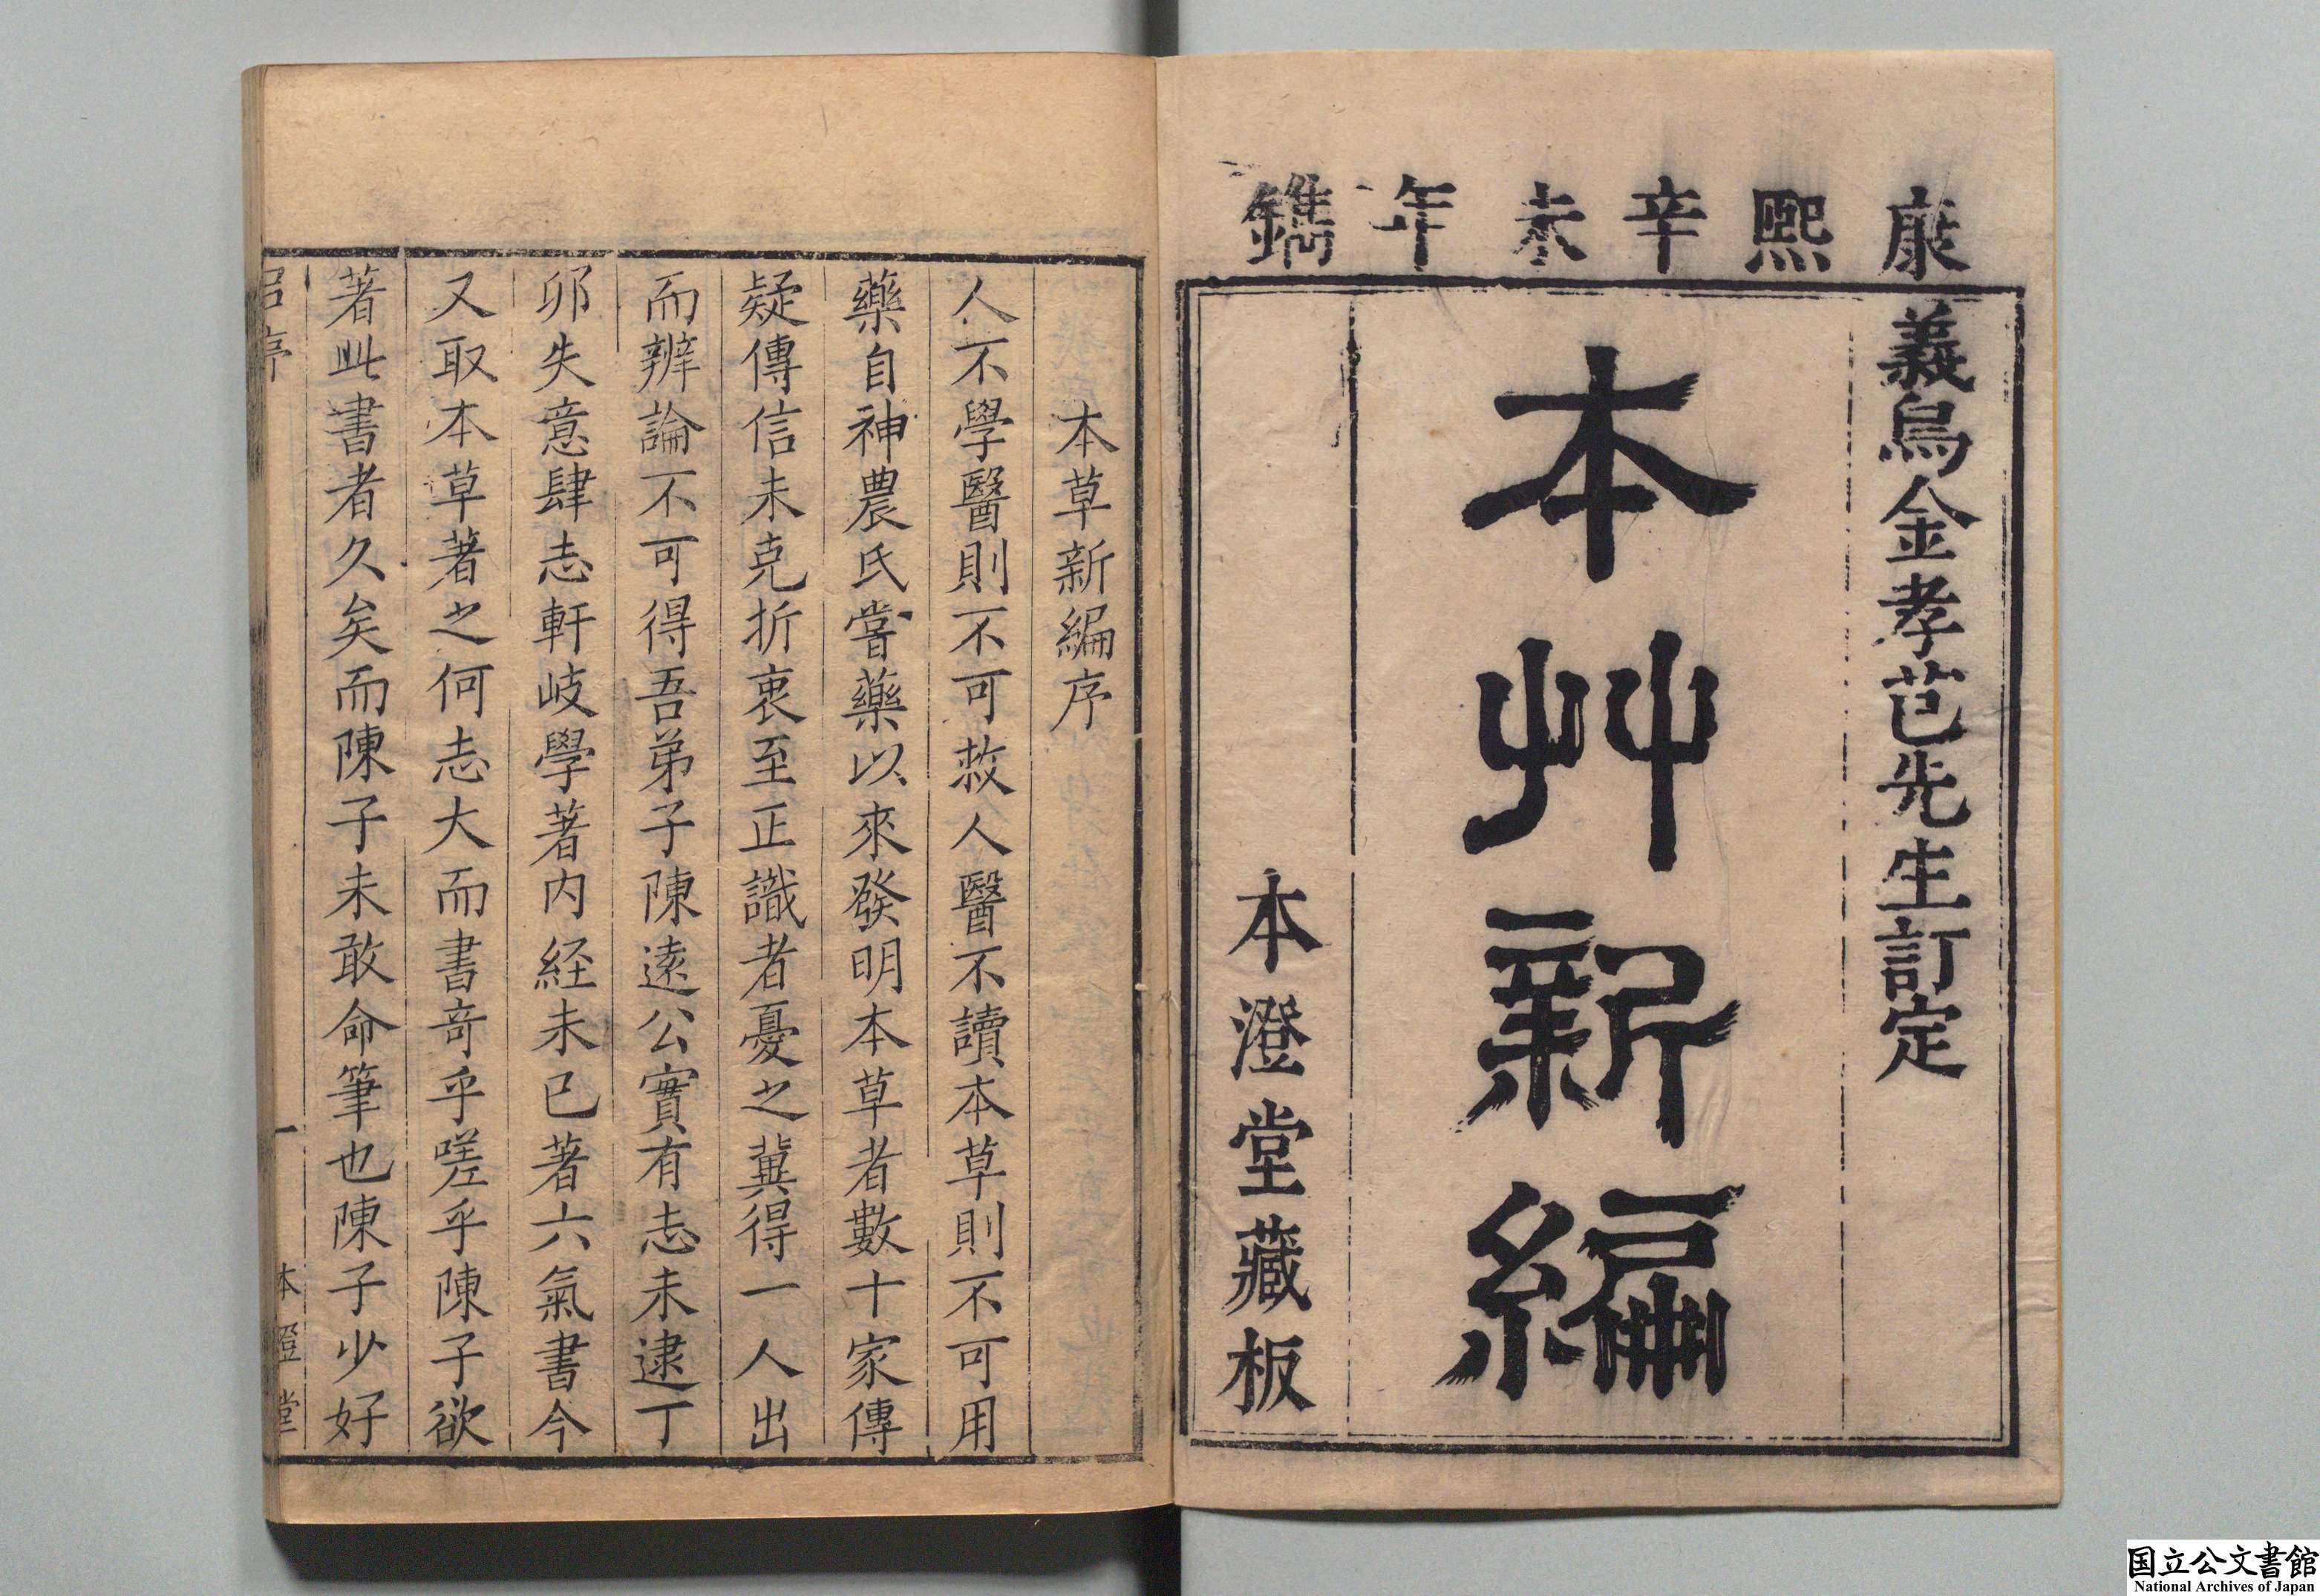 康熙辛未年鐫
義烏金孝芑先生訂定
本艸新編
本澄堂藏板
本草新編序
人不學醫則不可救人醫不讀本草則不可用
藥自神農氏嘗藥以來發明本草者數十家傳
疑傳信未克折衷至正識者憂之冀得一人出
而辨論不可得吾弟子陳遠公實有志未逮丁
卯失意肆志軒岐學著内経未已著六氣書今
又取本草著之何志大而書竒乎嗟乎陳子欲
著此書者久矣而陳子未敢命筆也陳子少好
一
本澄堂
国立公文書館
National Archives of Japan